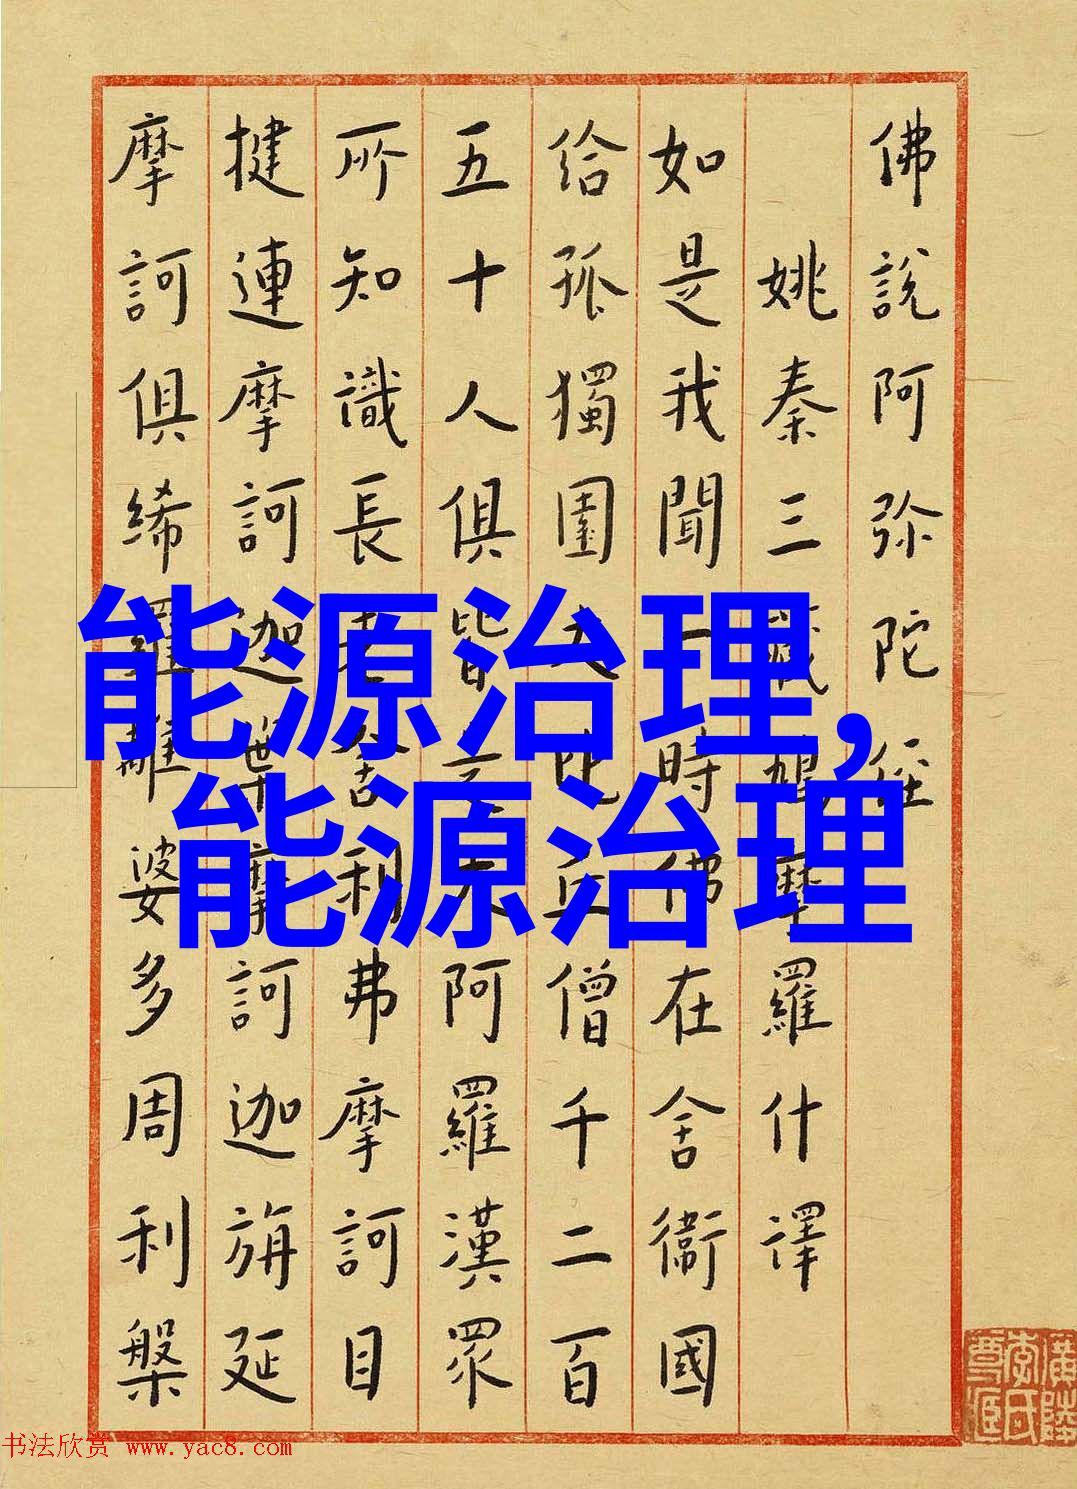 佛說阿弥陀経
姚秦三藏鳩摩羅什譯
如是我聞一時佛在舍衞國
给孤獨園大比丘僧千二百
五十人俱皆是大阿羅漢眾
所知識長老舍利弗摩訶目
揵連摩訶迦葉摩訶迦旃延
摩訶俱絺羅離婆多周利槃
能源治理,
能源治理
廣陵
李氏
书法欣赏 www.yac8.com